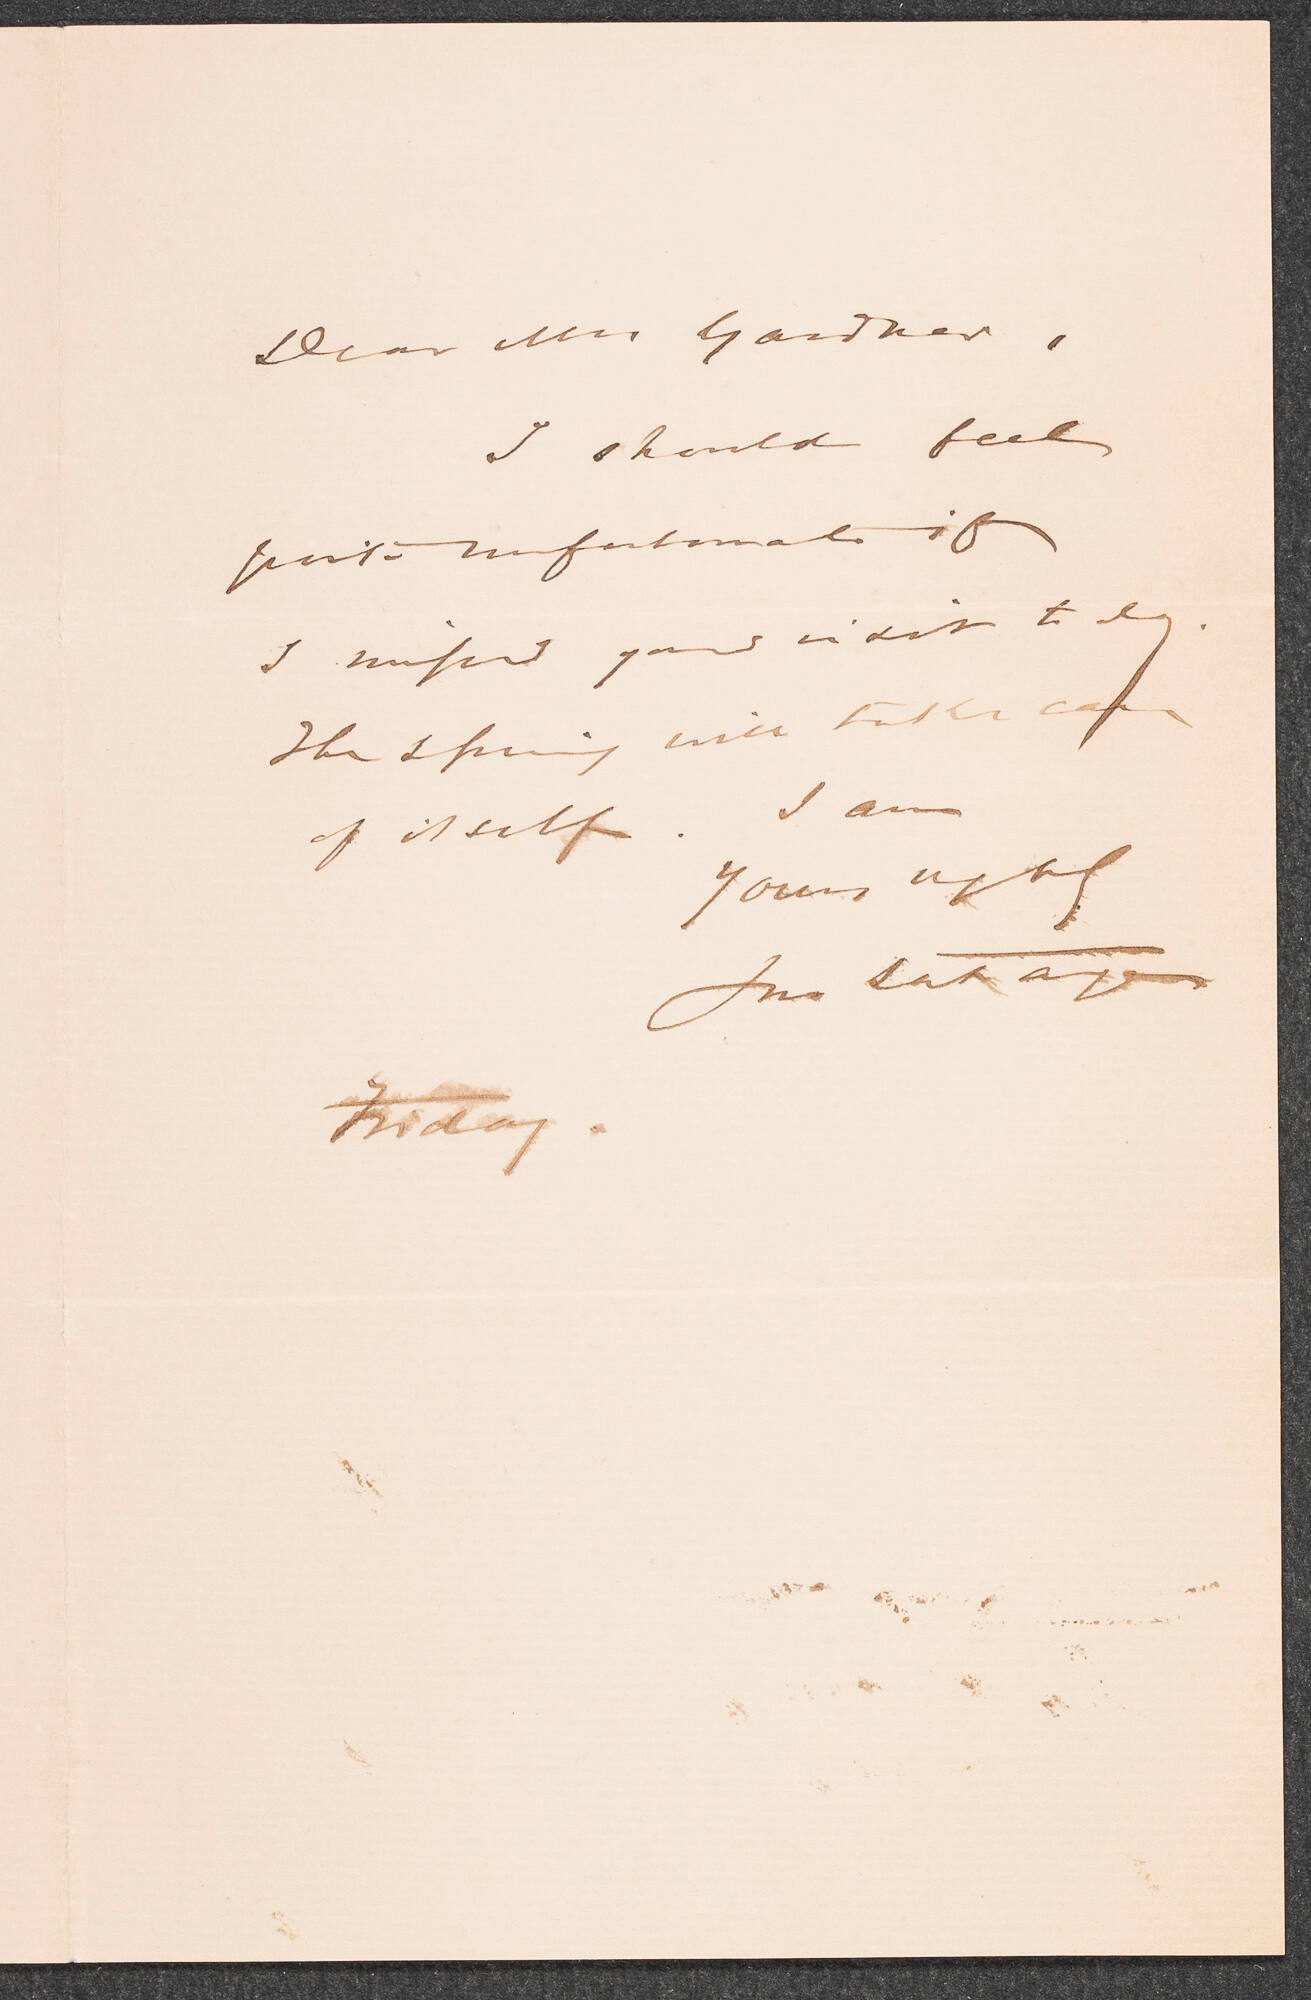 Dear Mrs Gardner,
I should feel
quite unfortunate if
I missed your visit to day.
The spring will take care
of itself. I am
Yours
Jno
Friday.